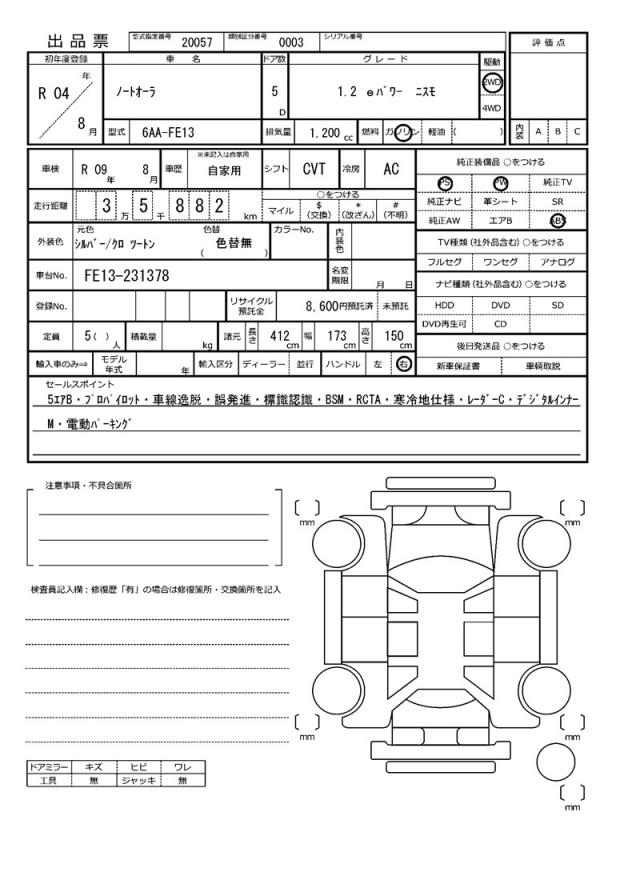 出品票 型式指定番号 20057 類別区分番号 0003 シリアル番号 評価点
初年度登録 車名 ドア数 グレード 駆動
R 04 年 8 月 ノートオーラ 5 D 1.2 eパワー ニスモ 2WD 4WD
型式 6AA-FE13 排気量 1.200 cc 燃料 ガソリン 軽油 ( ) 内装 A B C
車検 R 09 年 8 月 車歴 ※未記入は自家用 自家用 シフト CVT 冷房 AC 純正装備品 ○をつける
PS PW 純正TV
走行距離 3 万 5 千 8 8 2 km ○をつける 純正ナビ 革シート SR
マイル $ (交換) * (改ざん) # (不明) 純正AW エアB ABS
外装色 元色 シルバー/クロ ツートン 色替 色替無 ( ) カラーNo. 内装色 TV種類 (社外品含む) ○をつける
フルセグ ワンセグ アナログ
車台No. FE13-231378 名変期限 月 日 ナビ種類 (社外品含む) ○をつける
登録No. リサイクル預託金 8,600円預託済 未預託 HDD DVD SD
DVD再生可 CD
定員 5 ( ) 人 積載量 kg 諸元 長さ 412 cm 幅 173 cm 高さ 150 cm 後日発送品 ○をつける
輸入車のみ⇒ モデル年式 年 輸入区分 ディーラー 並行 ハンドル 左 右 新車保証書 車輌取説
セールスポイント
5エアB・プロパイロット・車線逸脱・誤発進・標識認識・BSM・RCTA・寒冷地仕様・レーダーC・デジタルインナー
M・電動パーキング
注意事項・不具合箇所
検査員記入欄：修復歴「有」の場合は修復箇所・交換箇所を記入
mm
mm
mm
mm
mm
ドアミラー キズ ヒビ ワレ
工具 無 ジャッキ 無